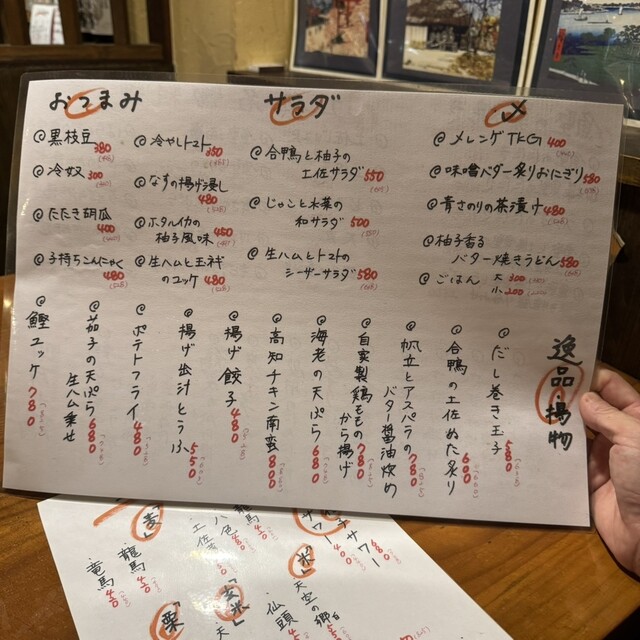 おつまみ
◎黒枝豆 380
◎冷奴 300
◎たたき胡瓜
400
◎子持ちこんにゃく
480
◎冷やしトマト
350
◎なすの揚げ浸し
480
◎ホタルイカの
柚子風味 450
◎生ハムと玉ネギ
のユッケ 480
サラダ
◎合鴨と柚子の
土佐サラダ 550
◎じゃこと水菜の
和サラダ 500
◎生ハムとトマトの
シーザーサラダ 580
〆
◎メレンゲTKG 400
◎味噌バター炙りおにぎり 580
◎青さのりの茶漬け 480
◎柚子香る
バター焼きうどん 580
◎ごはん 大 300
小 200
逸品・揚物
◎だし巻き玉子 580
◎合鴨の土佐ぬた炙り 600
◎帆立とアスパラの
バター醤油炒め 780
◎自家製鶏ももの
から揚げ 780
◎海老の天ぷら 680
◎高知チキン南蛮 800
◎揚げ餃子 480
◎揚げ出汁とうふ 550
◎ポテトフライ 480
◎茄子の天ぷら
生ハム乗せ 680
◎鰹ユッケ 780
サワー 400
サワー 480
「米」
天空の郷
仙頭
「麦」
土佐
八色
龍馬
龍馬
竜馬
「玄米」
「栗」